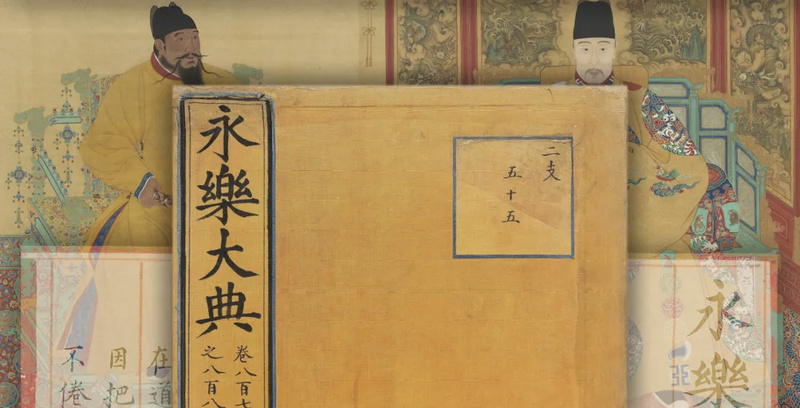 永樂大典
卷八百七
之八百八
二支
五十五
在道
因把
不倦
永樂